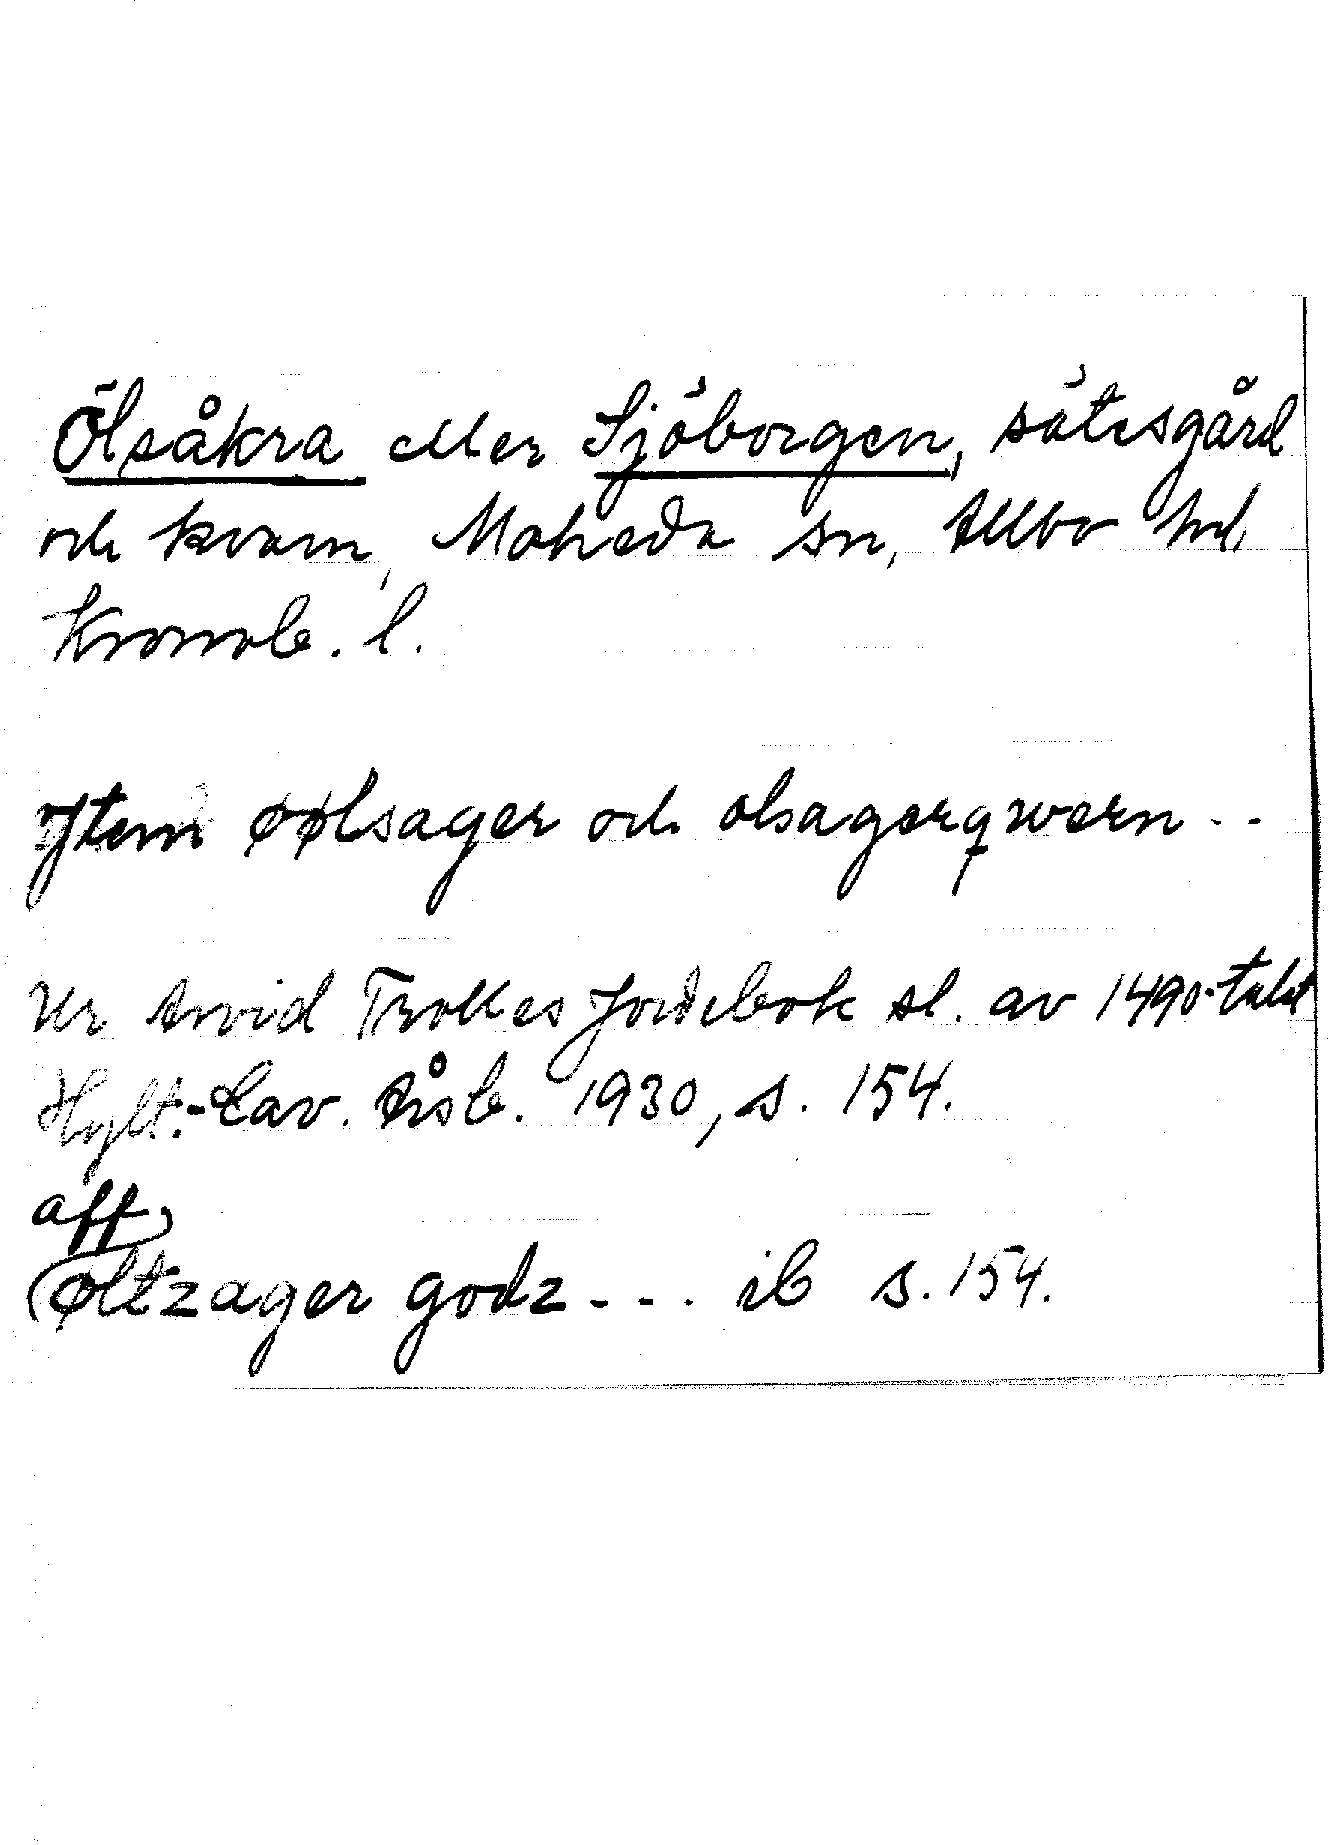 Ölsåkra eller Sjöborgen, sätesgård
och kvarn, Moheda sn, Allbo hd,
Kronob. l.
Jtem øølsager och olsagerqwern - -
Ur Arvid Trolles Jordebok sl. av 1490-talet
Hylt.-Cav. Årsb. 1930, s. 154.
aff
øltzager godz - - - ib s. 154.